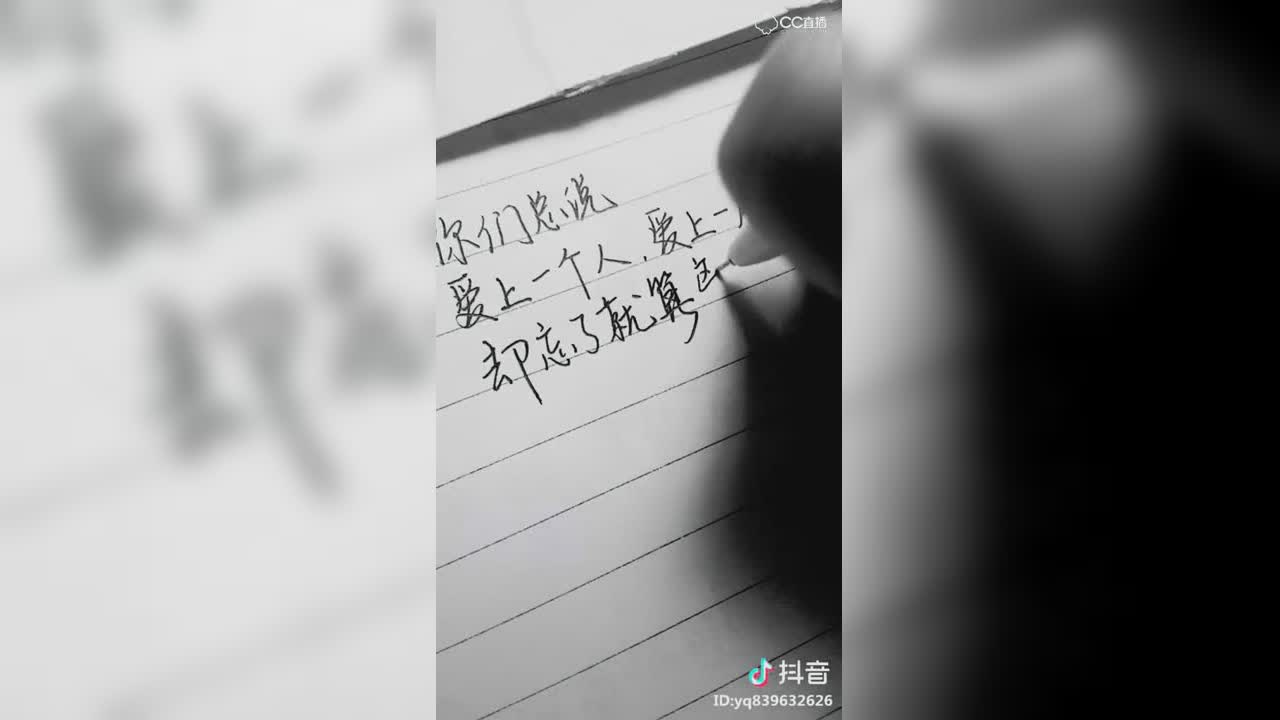 CC直播
你们总说
爱上一个人,爱上一
却忘了就算
抖音
ID:yq839632626